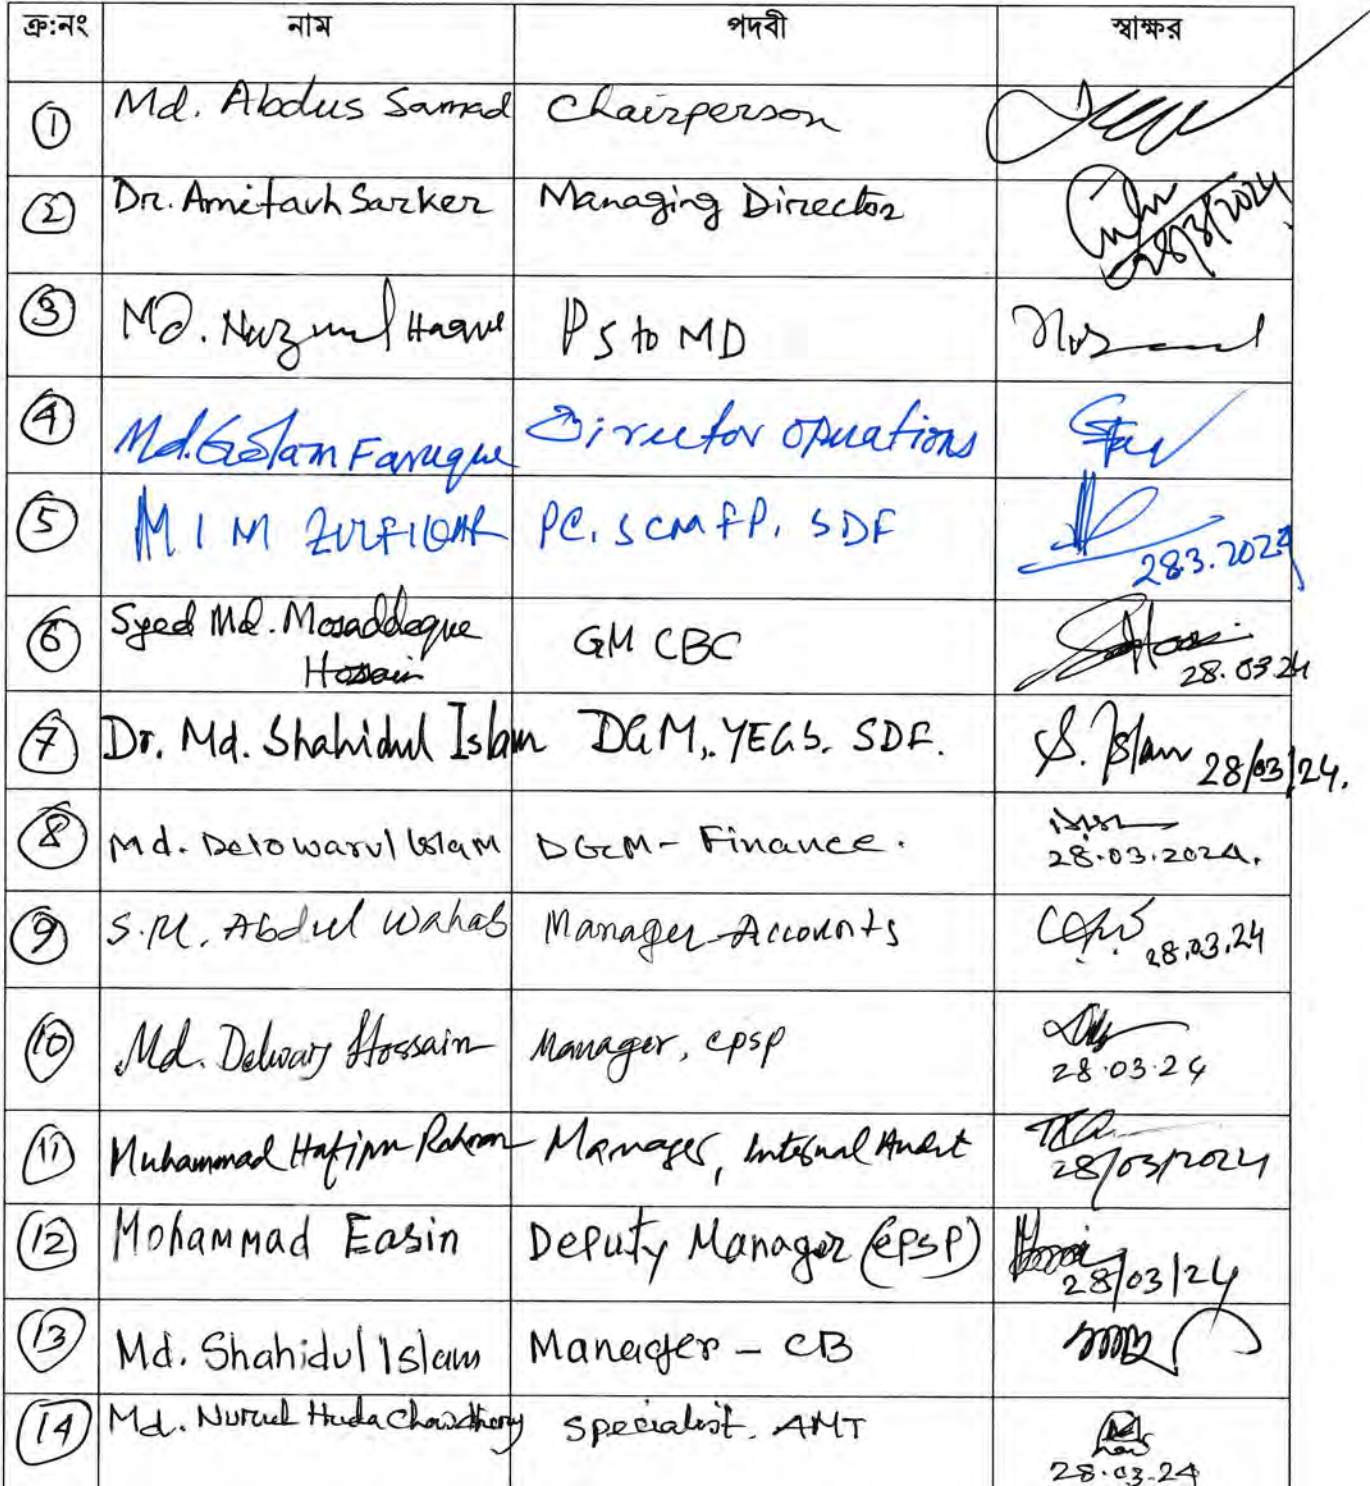 ক্র:নং নাম পদবী স্বাক্ষর
1 Md. Abdus Samad Chairperson
2 Dr. Amitavh Sarker Managing Director 28/3/2024
3 Md. Nazmul Haque PS to MD
4 Md. Golam Faruque Director Operations
5 M I M ZULFIQAR PC, SCMFP, SDF 28.3.2024
6 Syed Md. Mosaddeque GM CBC
Hossain 28.03.24
7 Dr. Md. Shahidul Islam DGM, YEGS, SDF. S. Islam 28/03/24.
8 Md. Delowarul Islam DGM - Finance.
28.03.2024.
9 S.M. Abdul Wahab Manager-Accounts 28.03.24
10 Md. Delwar Hossain Manager, CPSP
28.03.24
11 Muhammad Hafizur Rahman Manager, Internal Audit
28/03/2024
12 Mohammad Easin Deputy Manager (CPSP) 28/03/24
13 Md. Shahidul Islam Manager - CB
14 Md. Nurul Huda Chowdhury Specialist. AMT
28.03.24